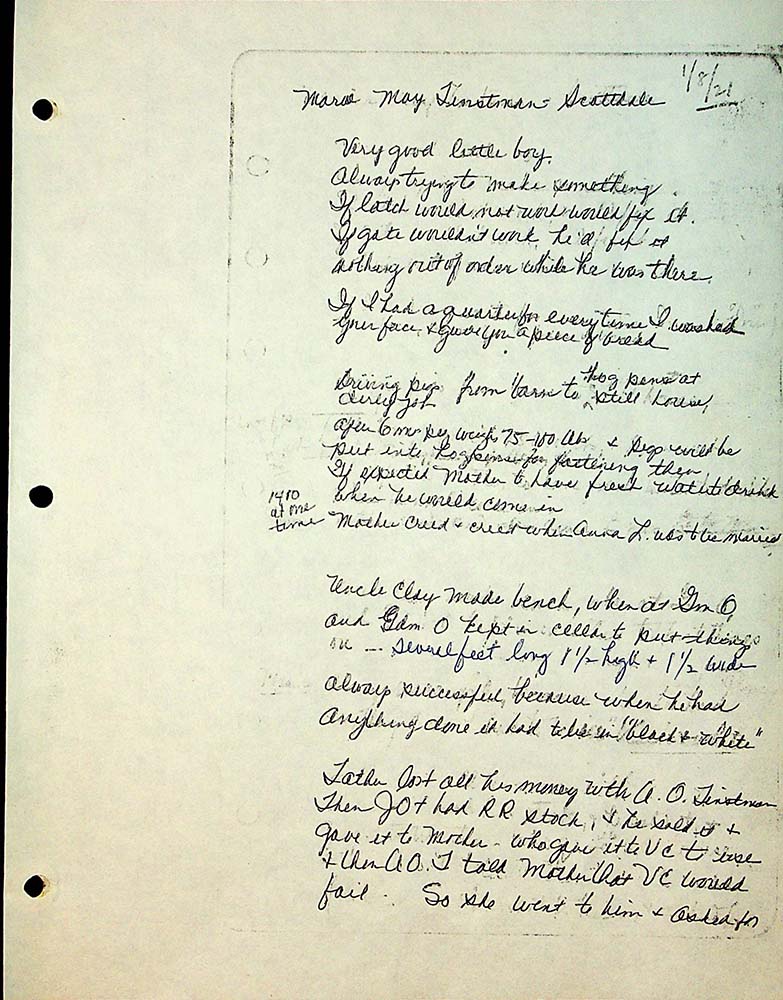 1/8/21
May Tinstman - Scottdale
Very good little boy.
Always trying to make something.
If latch would not work would fix it.
If gate wouldn't work, he'd fix it
nothing out of order while he was there.
If I had a quarter for every time I washed
your face & gave you a piece of bread
Driving pigs from barn to hog pens at
dirty job still house,
after 6 mo pig weighs 75-100 lbs & pigs would be
put into hog pens for fattening them
If expected Mother to have fresh water to drink
when he would come in
1400
at one
time
Mother cried & cried when Anna L. was to be married
Uncle Clay made bench, when at Gm O,
and Gdm O kept in cellar to put things
on - several feet long 1 1/2 high & 1 1/2 wide
always successful, because when he had
anything done it had to be in "black & white"
Father lost all his money with A. O. Tinstman
Then JOT had RR stock, & he sold it &
gave it to Mother - who gave it to UC to use
& then A.O.T told Mother that UC would
fail. So she went to him & asked for